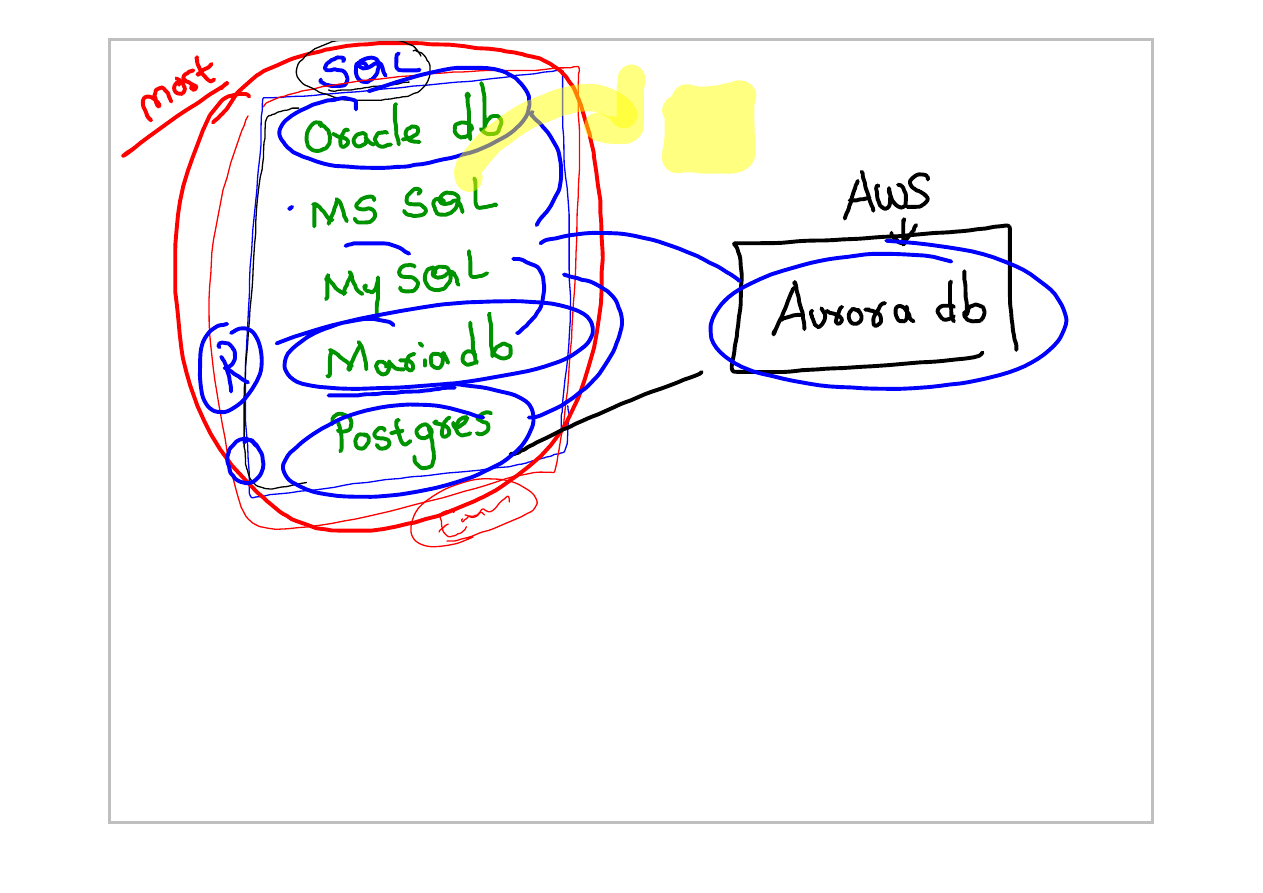 most
SQL
Oracle db
MS SQL
My SQL
Maria db
Postgres
R
AWS
Aurora db